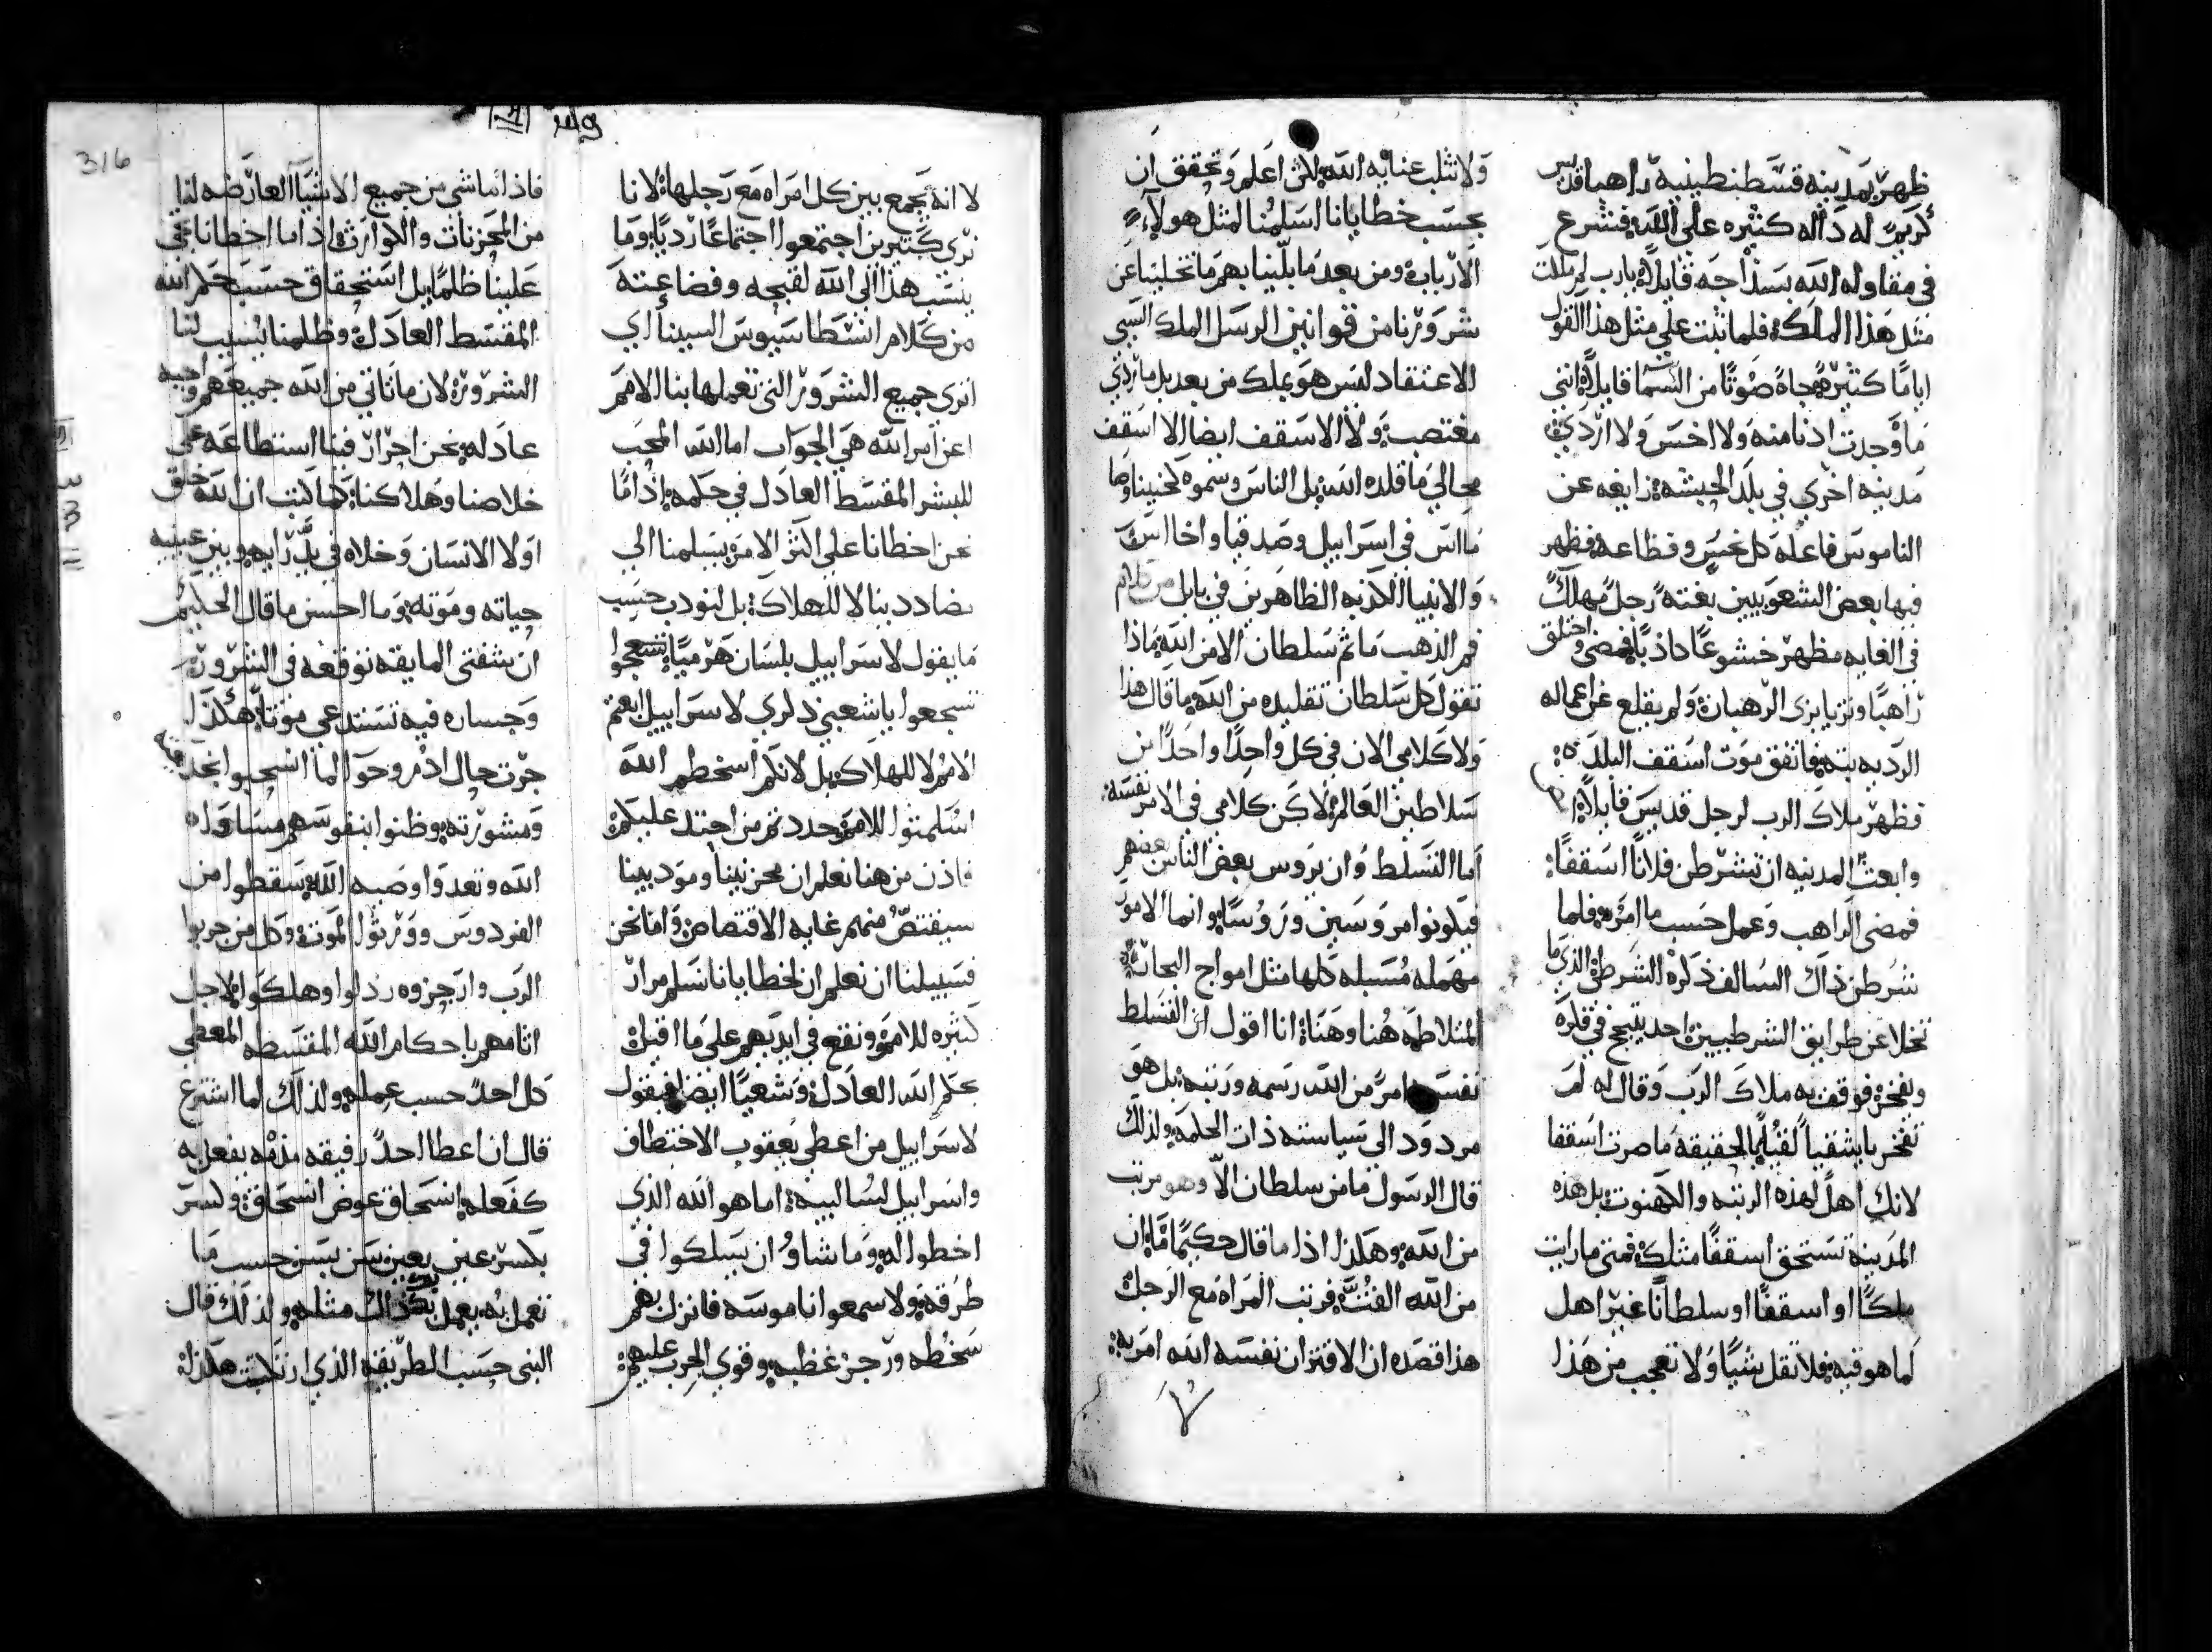 ظهر بمدينه قسطنطينية راهبا قديس
كريم له داله كثيره على الله فشرع
في مقاوله الله بسذاجه قايلاً يارب لم ملكت
مثل هذا الملك فلما ثبت علي مثل هذا القول
اياما كثيره جاه صوتا من السما قايلاً انني
ما وجدت ادنا منه ولا اخس ولا اردي
مدينه اخري في بلد الحبشه زايغه عن
الناموس فاعله كل نجس وفظاعه فظهر
فيها بعض الشعوبيين بغته رجل مهلك
في الغايه مظهر خشوعا كاذبا فمضي واختلق
راهبا وتزيا بزي الرهبان ولم يقلع عن اعماله
الرديه بته فاتفق موت اسقف البلد
فظهر ملاك الرب لرجل قديس قايلاً
وابعث المدينه ان تشرطن فلانا اسقفا
فمضي الراهب وعمل حسب ما امره فلما
شرطن ذاك السالف ذكره الشرطن الذي ما
تخلا عن طرايق الشرطيين احد يتبجح في فكره
ويفخر فوقف به ملاك الرب وقال له لم
تفخر يا شقيا لقبلي بالحقيقه ما صرت اسقفا
لانك اهل لهذه الرتبه والكهنوت بل هذه
المدينه تستحق اسقفا مثلك فمتي ما رايت
ملكا او اسقفا او سلطانا غير اهل
لما هو فيه فلا تقل شيا ولا تعجب من هذا
ولا تثلب عنايه الله لكن اعلم وتحقق ان
بحسب خطايانا اسلمنا لمثل هولاء
الارباب ومن بعد ما بلينا بهم ما تخلينا عن
شرورنا من قوانين الرسل الملك السي
الاعتقاد ليس هو يملك من بعد بل ماردي
مغتصب ولا الاسقف ايضا الا اسقف
محالي ما قلده الله بل الناس وسموه
ما اس في اسراييل وصدقيا واخا اس
والانبيا الكذبه الظاهرين في بابل من كلام
فم الذهب ما ثم سلطان الا من الله ماذا
تقول كل سلطان تقليده من الله ما قال هذا
ولا كلامي الان في كل واحدا واحدا من
سلاطين العالم لكن كلامي في الامر نفسه
اما التسلط وان يروس بعض الناس بعضهم
فيكونوا مروسين وروسا وانما الامور
مهمله مسبله كلها مثل امواج البحار
المتلاطمه هنا وهناك انا اقول ان التسلط
نفسه امر من الله رسمه ورتبه بل هو
مردود الي سياسته ذات الحكمه ولذلك
قال الرسول ما من سلطان الا وهو مرتب
من الله وهكذا اذا ما قال حكيما ما ان
من الله الفت فرتب المراه مع الرجل
هذا قصده ان الاقتران نفسه الله امر به
لا انه يجمع بين كل امراه مع رجلها لانا
نري كثيرين اجتمعوا اجتماعا رديا وما
ينسب هذا الي الله لقبحه وفضاعته
من كلام انسطاسيوس السينا اي
اتري جميع الشرور التي تعملها بنا الامم
اعن امر الله هي الجواب اما الله المحب
للبشر المقسط العادل في حكمه اذا ما
نحن اخطانا علي اكثر الامر يسلمنا الي
يضاددينا لا للهلاك بل ليودب حسب
ما يقول لاسراييل بلسان هرميا تشجعوا
تسجعوا يا شعبي ذكري لاسراييل ابعتم
الامم لا للهلاك بل لانكم اسخطم الله
اسلمتوا للامم وحدد تمرمن احتد عليكم
فاذن من هنا نعلم ان محزنينا ومودبينا
سيقتص منهم غايه الاقتصاص واما نحن
فسبيلنا ان نعلم ان لخطايانا نسلم مرار
كثيره للامم ونقع في ايديهم علي ما اقبل
حكم الله العادل وشعيا ايضا فيقول
لاسراييل من اعطي يعقوب الاختطاف
واسراييل لسالبيه اما هو الله الذي
اخطوا له وما شاوُ ان يسلكوا في
طرقه ولا سمعوا ناموسه فانزل بهم
سخطه ورجز غظبه وقوي الحرب عليهم
فاذا ما شي من جميع الاشيا العارضه لنا
من المحزنات والكوارث اذا ما اخطانا يجي
علينا ظلما بل استحقاق حسب حكم الله
المقسط العادل وظلمنا نسيب لنا
الشرور لان ما تاتي من الله جميعهم واجبه
عادله نحن احرار فينا استطاعه علي
خلاصنا وهلاكنا كما كتب ان الله خلق
اولا الانسان وخلاه في يد رايه وبين عينيه
حياته وموته وما احسن ما قال الحكيم
ان شفتي المايقه توقعه في الشرور
وجساره فيه تستدعي موتا هكذا
جرت حال ادم وحوا لما انسحبوا
ومشورته وظنوا بنفوسهم مساواه
الله وتعدوا وصيه الله سقطوا من
الفردوس وورثوا الموت وكل من جربوا
الرب وارجزوه رذلوا وهلكوا لاجل
اثامهم باحكام الله المقسطه المعطي
كل احد حسب عمله ولذلك لما اشترع
قال ان اعطا احد رفيقه مذمه يفعل به
كفعله انسحاق عوض انسحاق ولسر
بكسر عين بعين سن بسن حسب ما
تعمل به يعمل بك ذاك مثله ولذلك قال
النبي حسب الطريقه الذي ارتكبت هكذا
316